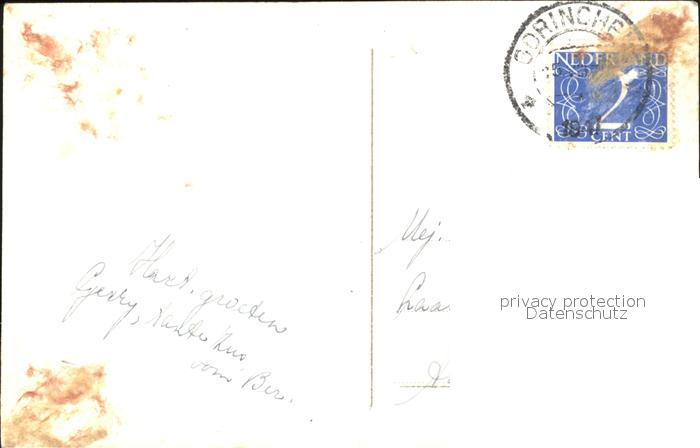 GORINCHE
NEDERLAND
2
CENT
Hart. groeten
Gerry, tante
oom Ber.
Mej.
privacy protection
Datenschutz